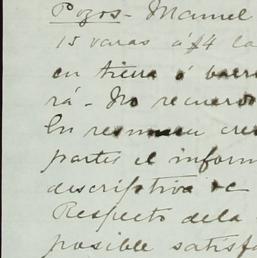 Pozos - Manuel
15 varas á $4 la
en tierra ó barr
rá - No recuerdo
En resumen cre
partes el inform
descriptiva de
Respecto de la
posible satisf